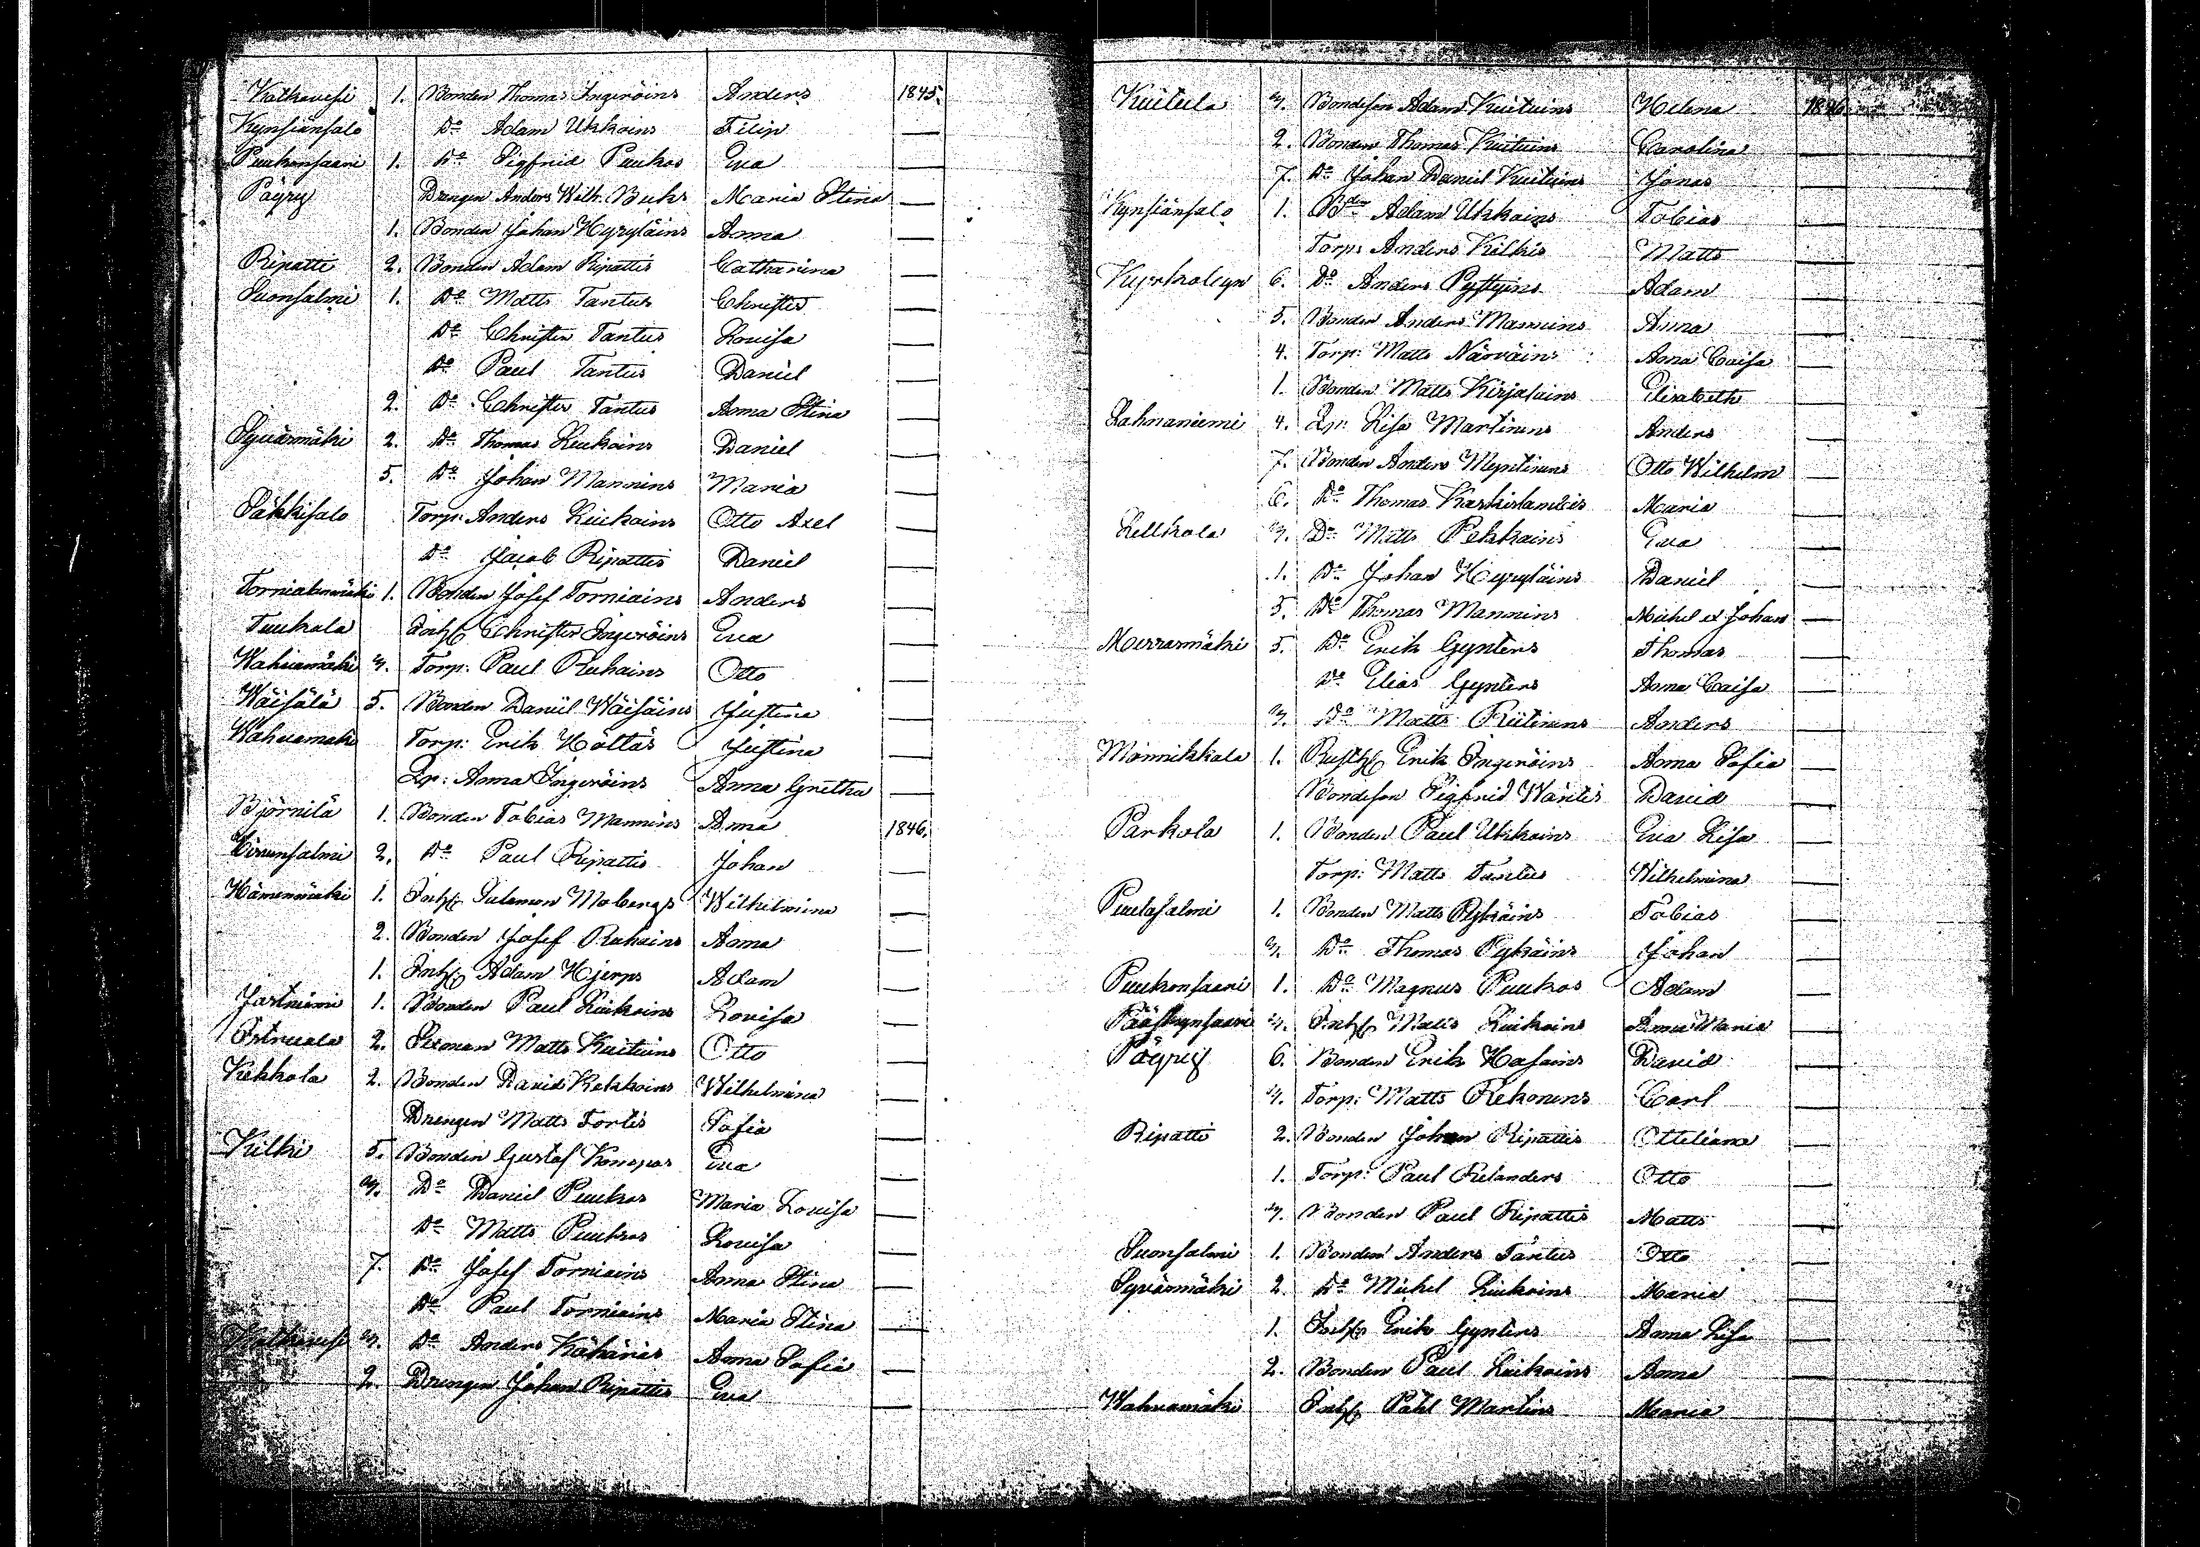 Katkavesi 1. Bonden Thomas Ingeröins Anders 1845.
Kynsiänsalo Do Adam Ukkoins Filip —
Puukonsaari 1. Do Sigfrid Puukos Eva —
Päyry Drengen Anders Wilh. Buhs Maria Stina —
1. Bonden Johan Hyryläins Anna —
Ripatti 2. Bonden Adam Ripattis Catharina —
Suonsalmi 1. Do Matts Tantus Christer —
Do Christer Tantus Lovisa —
Do Paul Tantus Daniel —
2. Do Christer Tantus Anna Stina —
Syvärmäki 2. Do Thomas Liukoins Daniel —
5. Do Johan Mannins Maria —
Säkkisalo Torp: Anders Liukoins Otto Axel —
Do Jacob Ripattis Daniel —
Torniakinmäki 1. Bonden Josef Torniains Anders —
Tuukala Inh: Christer Ingeröins Eva —
Wahvamäki 4. Torp: Paul Ruhains Otto —
Wäisälä 5. Bonden Daniel Wäisäins Justina —
Wahvamäki Torp: Erik Höltäs Justina —
Qp: Anna Ingeröins Anna Gretha —
Björnilä 1. Bonden Tobias Mannins Anna 1846.
Hirvensalmi 2. Do Paul Ripattis Johan —
Hämenmäki 1. Inh: Salomon Mobergs Wilhelmina —
2. Bonden Josef Ruhains Anna —
1. Inh: Adam Hjerps Adam —
Jortniemi 1. Bonden Paul Liukoins Lovisa —
2. Matts Kuituins Otto —
Kekkola 2. Bonden David Kekkoins Wilhelmina —
Drengen Matts Tortis Sofia —
Kilki 5. Bonden Gustaf Konopas Eva —
4. Do Daniel Puukos Maria Lovisa —
Do Matts Puukos Lovisa —
7. Do Josef Torniains Anna Stina —
Do Paul Torniains Maria Stina —
Katkavesi 4. Do Anders Kähäriäs Anna Sofia —
2. Drengen Johan Ripattis Eva —
Kuitula 4. Bondeson Adam Kuituins Helena 1846
2. Bonden Thomas Kuituins Carolina —
7. Do Johan Daniel Kuituins Jonas —
Kynsiänsalo 1. Bden Adam Ukkoins Tobias —
Torp: Anders Kilkis Matts —
Kyrkobyn 6. Do Anders Pyttyins Adam —
5. Bonden Anders Mannins Anna —
4. Torp: Matts Närväins Anna Caisa —
1. Bonden Matts Kirjalains Elisabeth —
Lahnaniemi 4. Qp: Lisa Martinens Anders —
7. Bonden Anders Myntinens Otto Wilhelm —
6. Do Thomas Maria —
Lellkola 4. Do Matts Pekkains Eva —
1. Do Johan Hyryläins Daniel —
5. Do Thomas Mannins Michel et Johan —
Murrarmäki 5. Do Erik Gynters Thomas —
Do Elias Gynters Anna Caisa —
4. Do Matts Riitinens Anders —
Männikkala 1. Rusth: Erik Ingeröins Anna Sofia —
Bondeson Sigfrid Wäntis David —
Parkola 1. Bonden Paul Ukkoins Eva Lisa —
Torp: Matts Tantus Wilhelmina —
Puulasalmi 1. Bonden Matts Pykäins Tobias —
4. Do Thomas Pykäins Johan —
Puukonsaari 1. Do Magnus Puukos Adam —
Pääskynsaari 4. Inh: Matts Liukoins Anna Maria —
Päyry 6. Bonden Erik Hasains David —
4. Torp: Matts Rekonens Carl —
Ripatti 2. Bonden Johan Ripattis Otteliana —
1. Torp: Paul Relanders Otto —
4. Bonden Paul Ripattis Matts —
Suonsalmi 1. Bonden Anders Tantus Otto —
Syvärmäki 2. Do Michel Liukoins Maria —
1. Inh: Erik Gynters Anna Lisa —
2. Bonden Paul Liukoins Anna —
Wahvamäki Inh: Påhl Martins Maria —